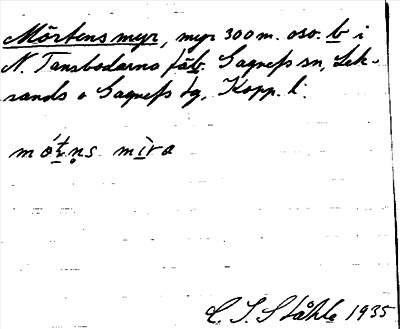 Mårtens myr, myr 300 m. oso. b i
N. Tansbodarna fäb. Gagnefs sn, Lek-
sands o Gagnefs tg, Kopp. l.
mó̱ṭṇs mìra
C. I. Ståhle 1935